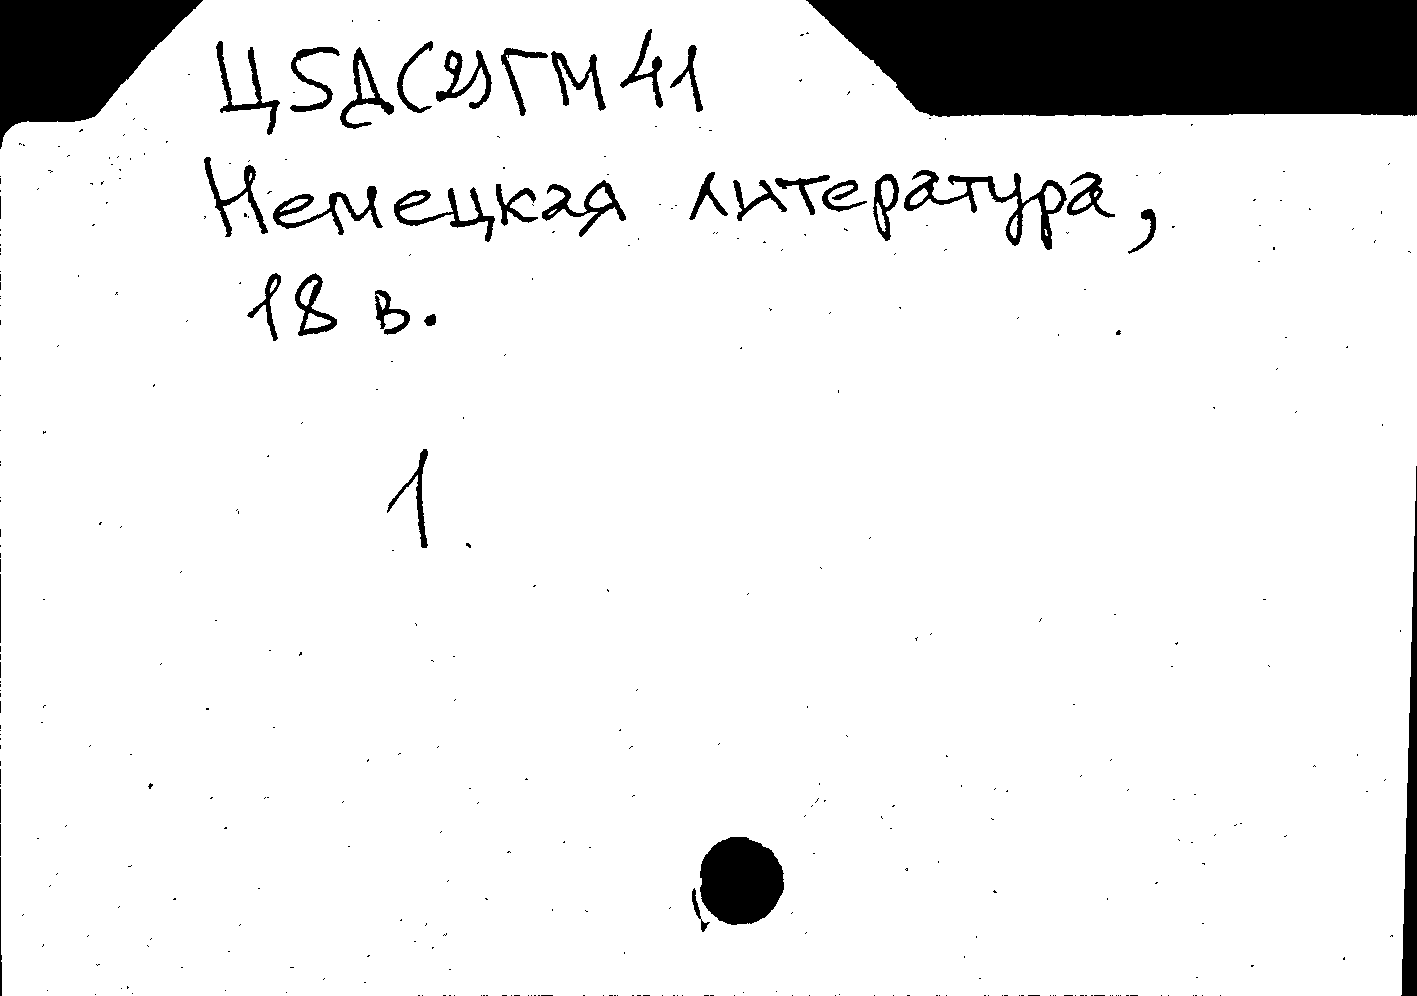 Ц5Д(2)ГМ41
Немецкая литература,
18 в.
1